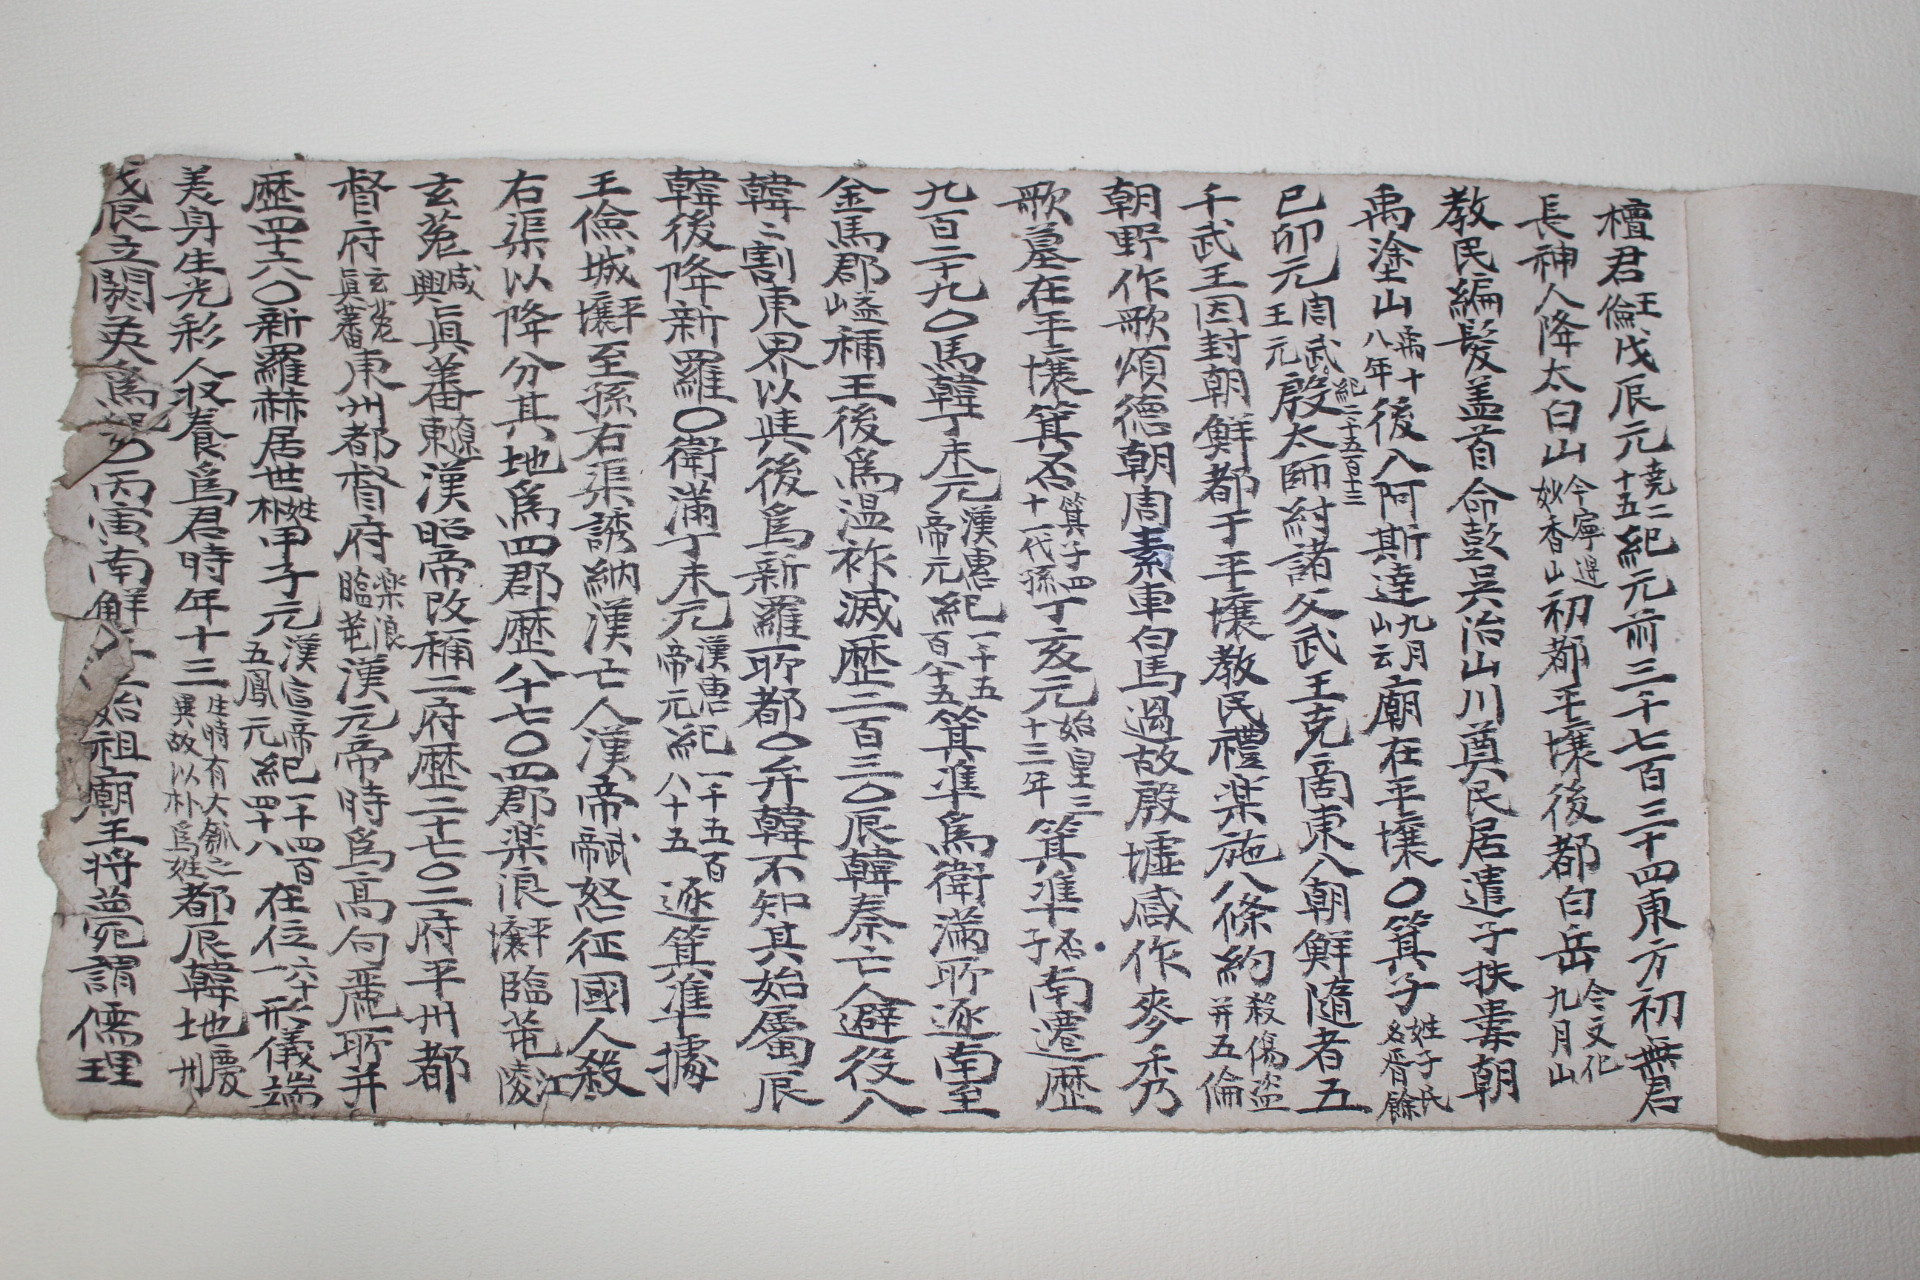 檀君王儉戊辰元堯二十五紀元前三千七百三十四東方初無君
長神人降太白山今寧邊妙香山初都平壤後都白岳今文化九月山
教民編髮盖首命彭吳治山川奠民居遣子扶婁朝
禹塗山禹十八年後入阿斯達九月山云廟在平壤〇箕子姓子氏名胥餘
已卯元周武王元紀二千五百十三殷太師紂諸父武王克商東入朝鮮隨者五
千武王因封朝鮮都于平壤教民禮楽施八條約殺傷盜并五倫
朝野作歌頌德朝周素車白馬過故殷墟感作麥秀
歌墓在平壤箕否箕子四十一代孫丁亥元始皇三十三年箕準否子南遷歷
九百二十九〇馬韓丁未元漢惠帝元紀一千五百八十五箕準為衛滿所逐南至
金馬郡益稱王後為温祚滅歷二百三〇辰韓秦亡人避役入
韓〻割東界以與後為新羅所都〇弁韓不知其始屬辰
韓後降新羅〇衛滿丁未元漢惠帝元紀一千五百八十五逐箕準據
王儉城平壤至孫右渠誘納漢亡人漢帝武帝怒征國人殺
右渠以降分其地為四郡歷八十七〇四郡楽浪平壤臨芚江陵
玄菟咸興眞番遼東漢昭帝改稱二府歷二十七〇二府平州都
督府玄菟眞番東州都督府楽浪臨芚漢元帝時為高句麗所并
歷四十六〇新羅赫居世姓朴甲子元漢宣帝五鳳元紀一千四百四十八在位六十一形儀端
美身生光彩人收養為君時年十三生時有大瓠之異故以朴為姓都辰韓地慶州
戊辰立閼英為丙寅南解立始祖廟王將薨謂儒理